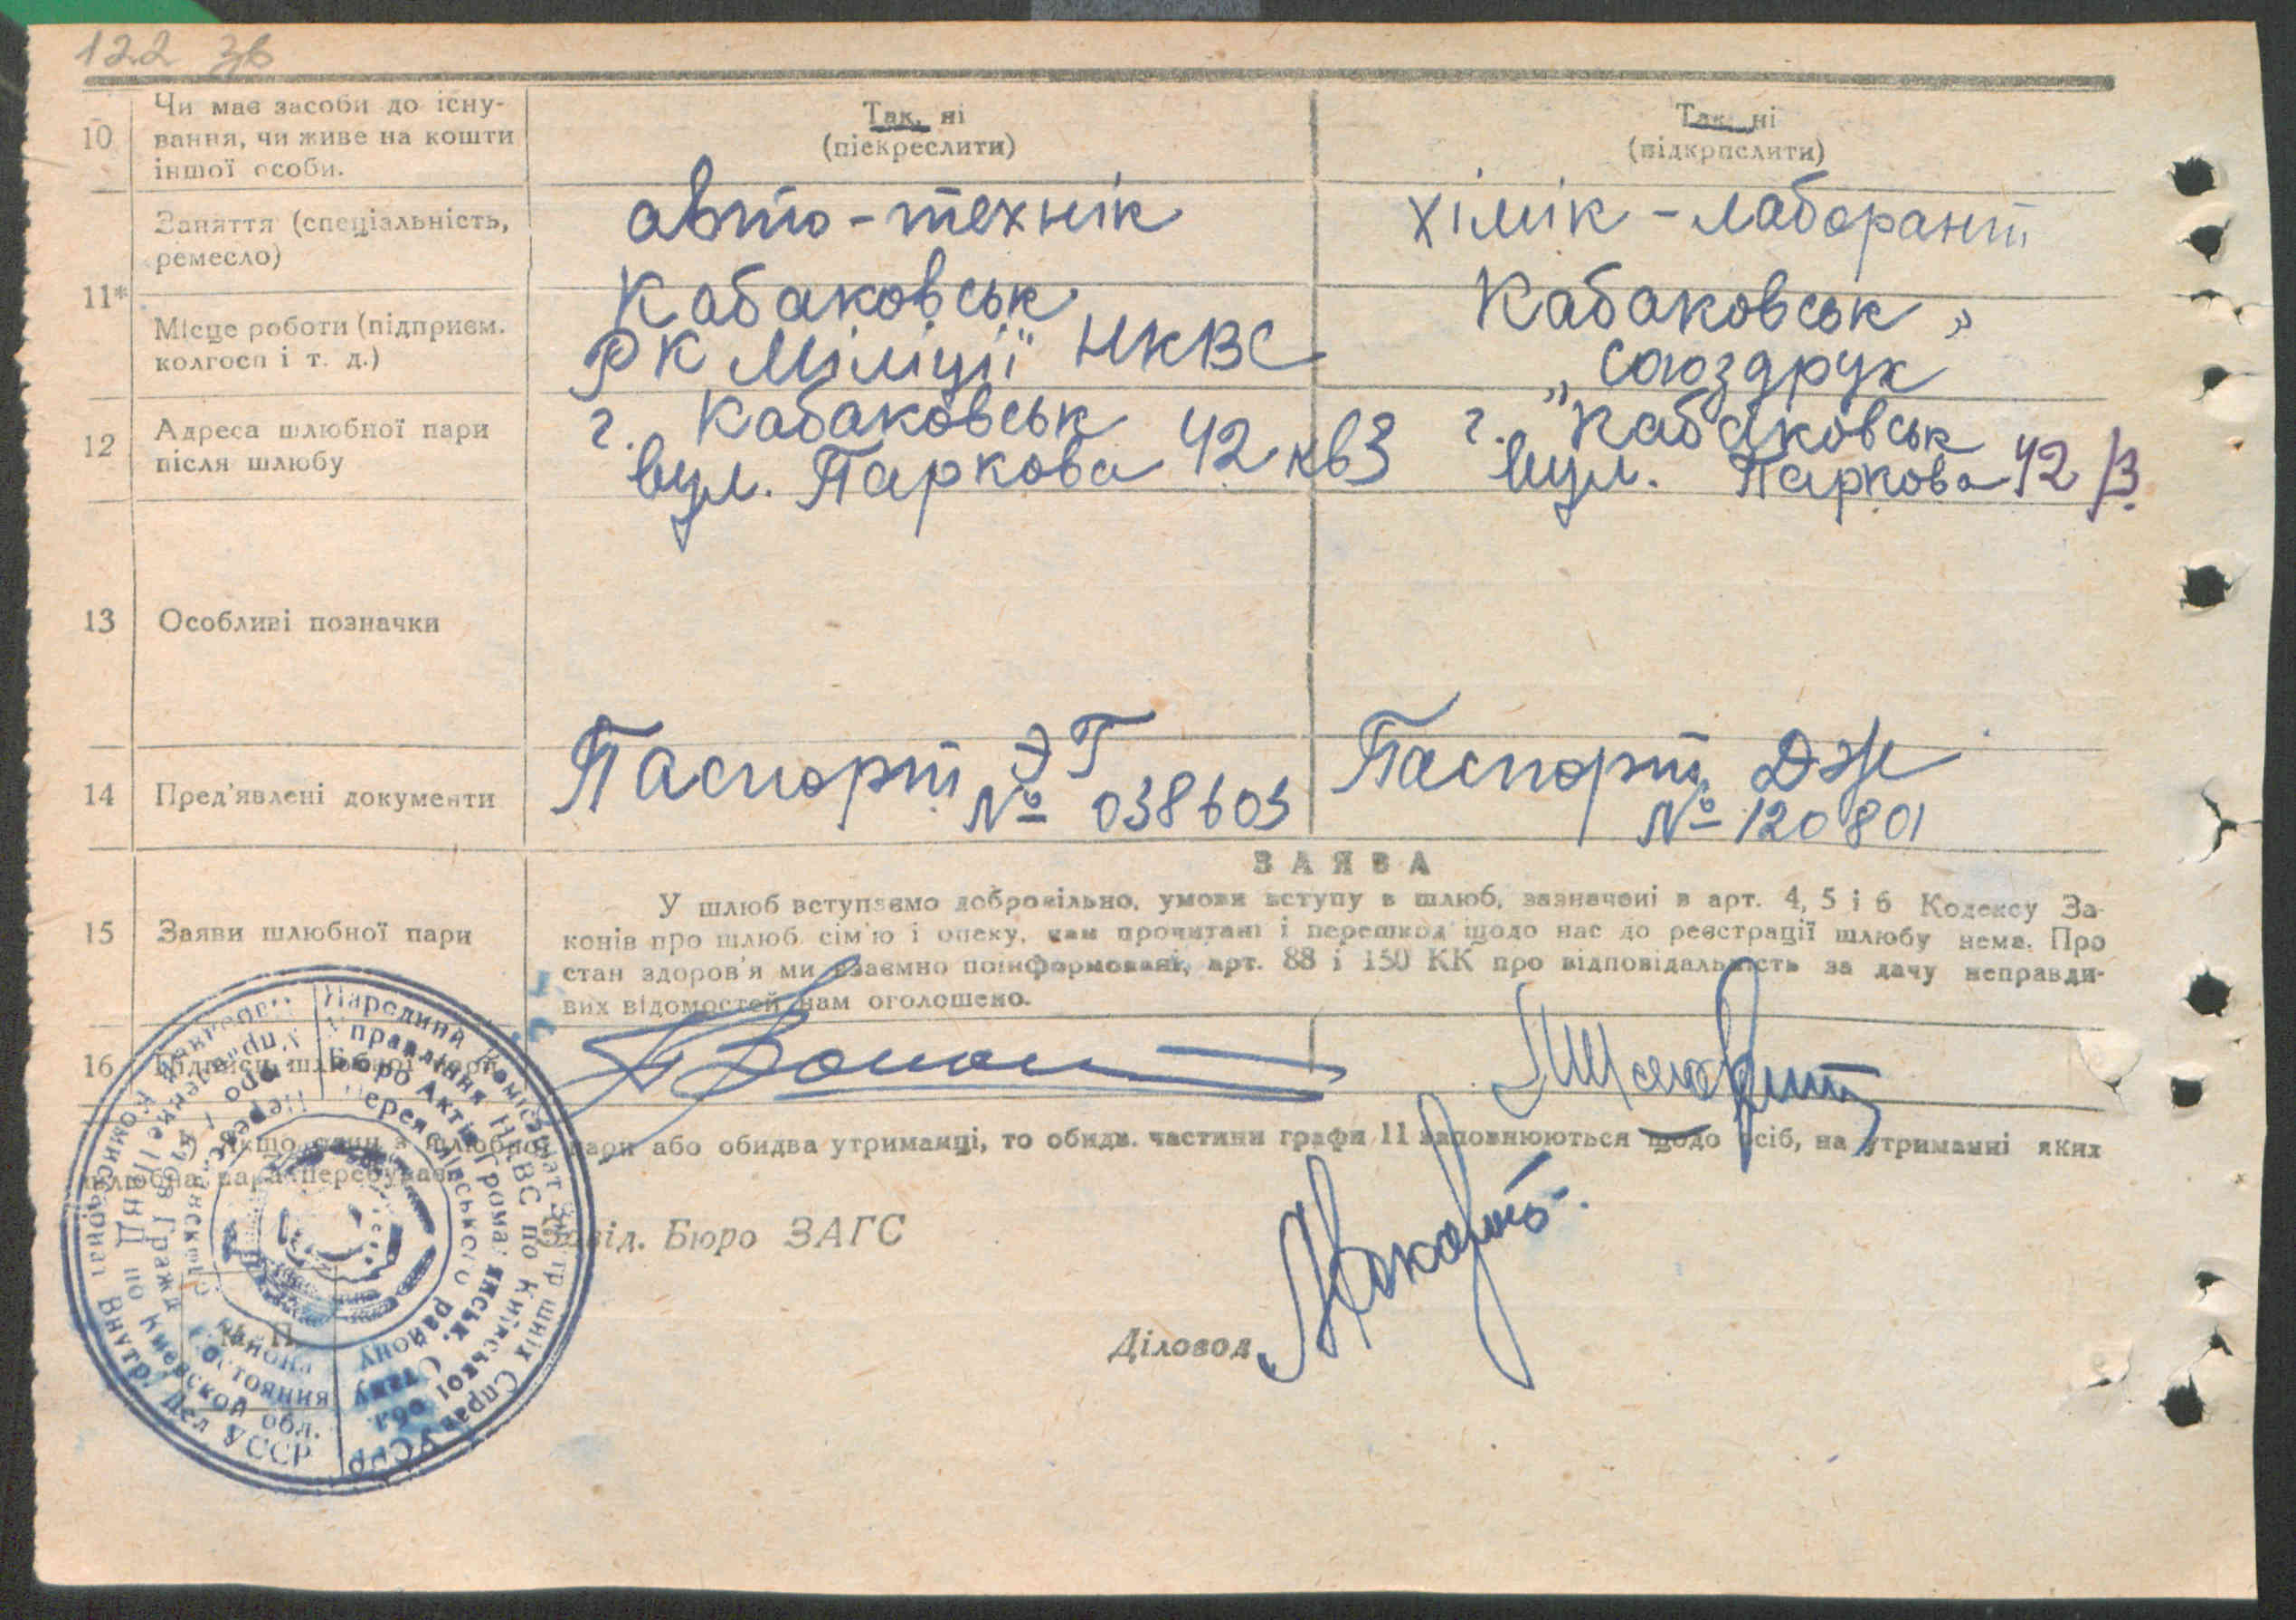 122 зв
10 Чи має засоби до існу-
вання, чи живе на кошти
іншої особи.
Так, ні
(піекреслити)
Так, ні
(підкрпслити)
11*
Заняття (спеціальність,
ремесло)
авто-технік
хімік-лаборант
Місце роботи (підприєм.
колгосп і т. д.)
Кабаковськ
РК Міліції НКВС
Кабаковськ
„Союздрук”
12 Адреса шлюбної пари
після шлюбу
г. Кабаковськ
вул. Паркова 42 кв3
г. Кабаковськ
вул. Паркова 42/3
13 Особливі позначки
14 Пред'явлені документи
Паспорт ЭТ
№ 038603
Паспорт Дж
№ 120801
15 Заяви шлюбної пари
ЗАЯВА
У шлюб вступаємо добровільно, умови вступу в шлюб, зазначені в арт. 4, 5 і 6 Кодексу За-
конів про шлюб, сім'ю і опеку, нам прочитані і перешкод щодо нас до реєстрації шлюбу нема. Про
стан здоров'я ми взаємно поінформовані, арт. 88 і 130 КК про відповідальність за дачу неправди-
вих відомостей нам оголошено.
16 Підписи шлюбної пари
Якщо один з шлюбної пари або обидва утриманці, то обидв. частини графи 11 заповнюються щодо осіб, на утриманні яких
шлюбна пара перебуває.
Завід. Бюро ЗАГС
Діловод
М. П.
Народний Комісаріат Внутрішніх Справ УСРР
Управління НКВС по Київській обл.
Бюро Актів Громадянськ. Стану
Переяславського району
Комиссариат Внутр. Дел УССР
НКВД по Киевской обл.
Гражд. Состояния
района